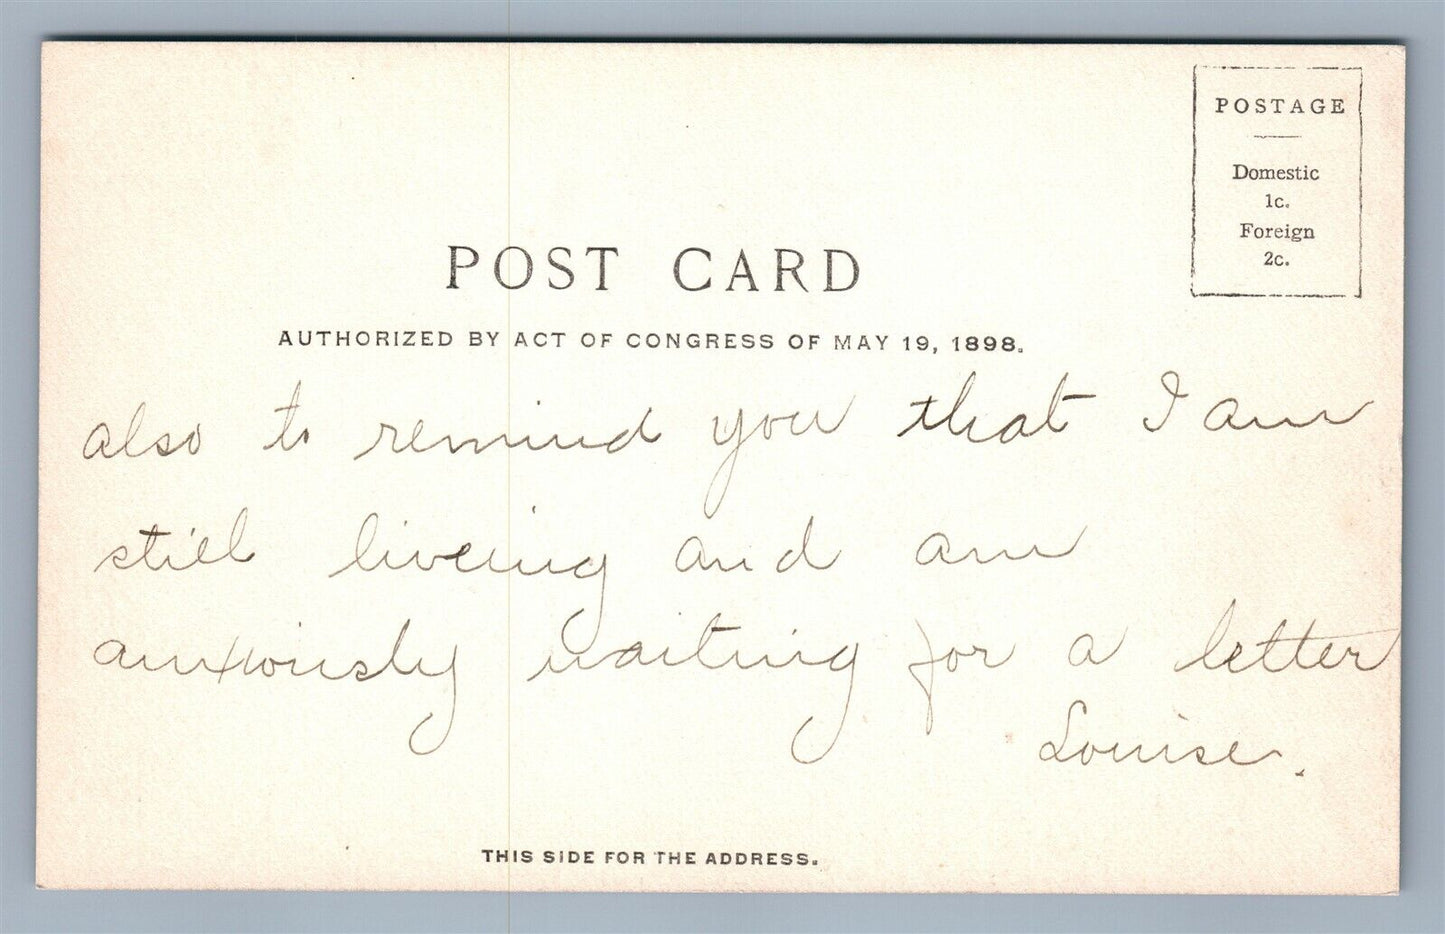 POSTAGE
Domestic
1c.
Foreign
2c.
POST CARD
AUTHORIZED BY ACT OF CONGRESS OF MAY 19, 1898.
also to remind you that I am
still liveing and am
anxiously waiting for a letter
Louise.
THIS SIDE FOR THE ADDRESS.